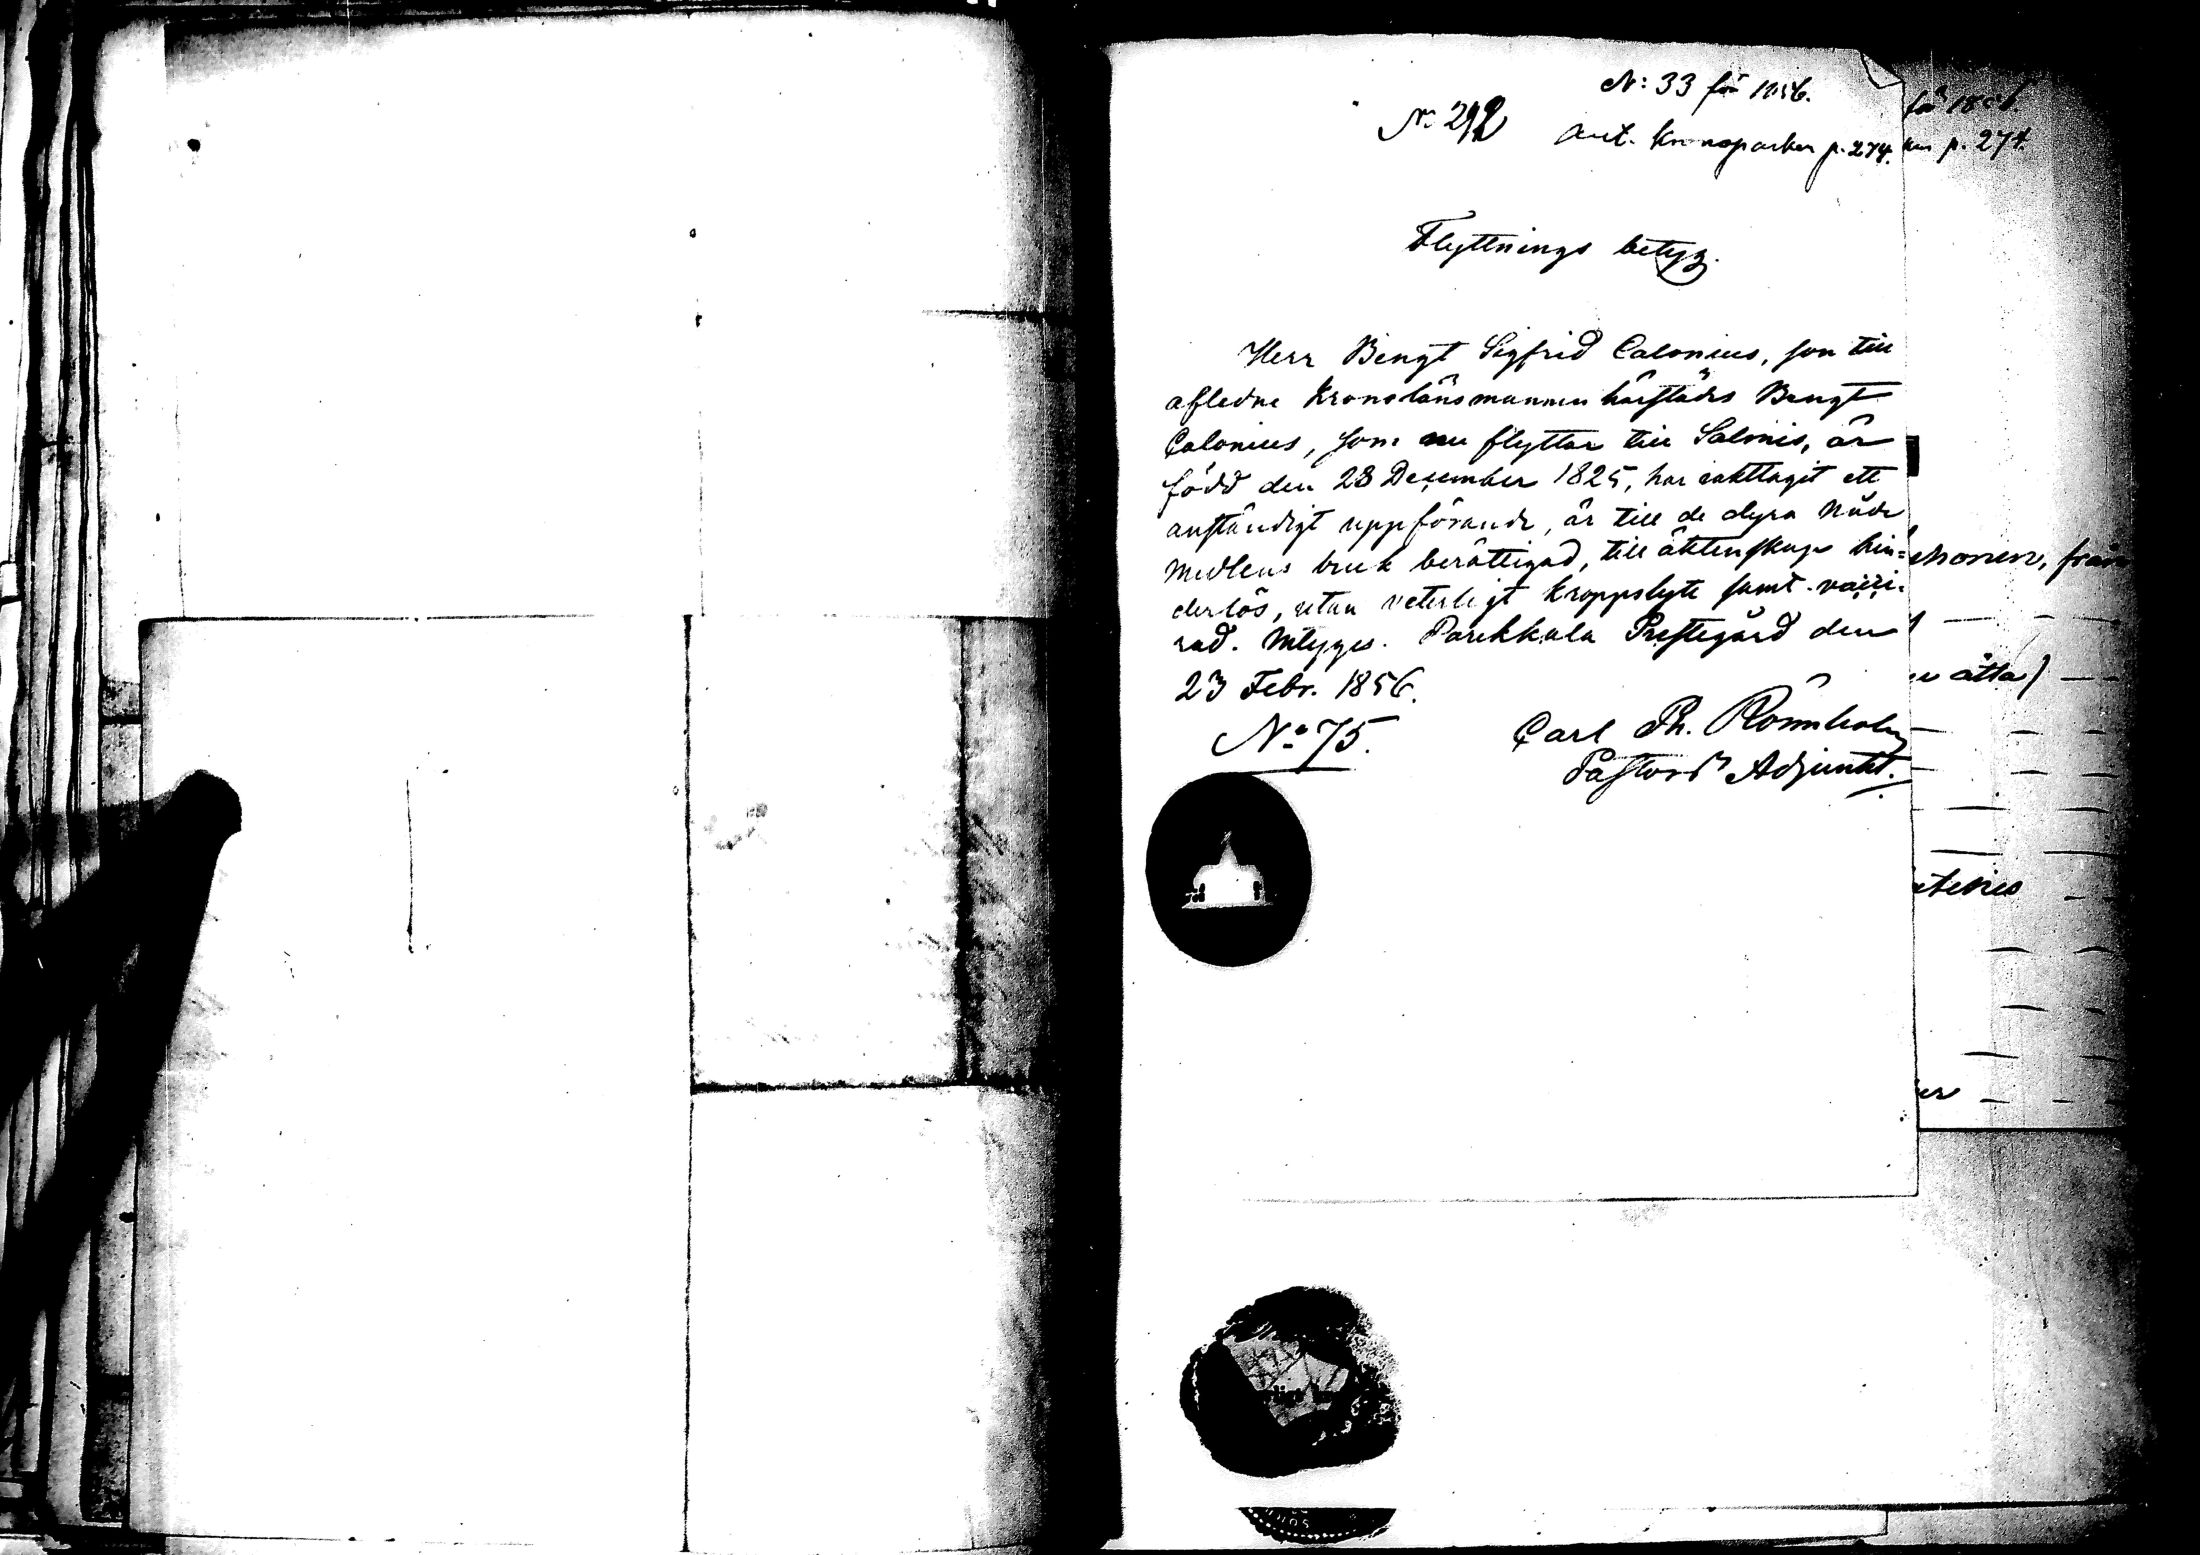 N: 33 för 1856.
No 292
Ant. Kronoparken p. 274.
för 1856
ken p. 274.
Flyttnings betyg.
Herr Bengt Sigfrid Calonius, son till
aflidne Kronolänsmannen härstädes Bengt
Calonius, som nu flyttar till Salmis, är
född den 28 December 1825, har iakttagit ett
anständigt uppförande, är till de dyra Nåde
medlens bruk berättigad, till äktenskaps hin=
derlös, utan veterligt kroppslyte samt vacci-
rad. Parikkala Prestegård den
23 Febr. 1856.
No 75.
Carl Th. Rönnholm
Pastors Adjunkt.
honen, från
åtta)